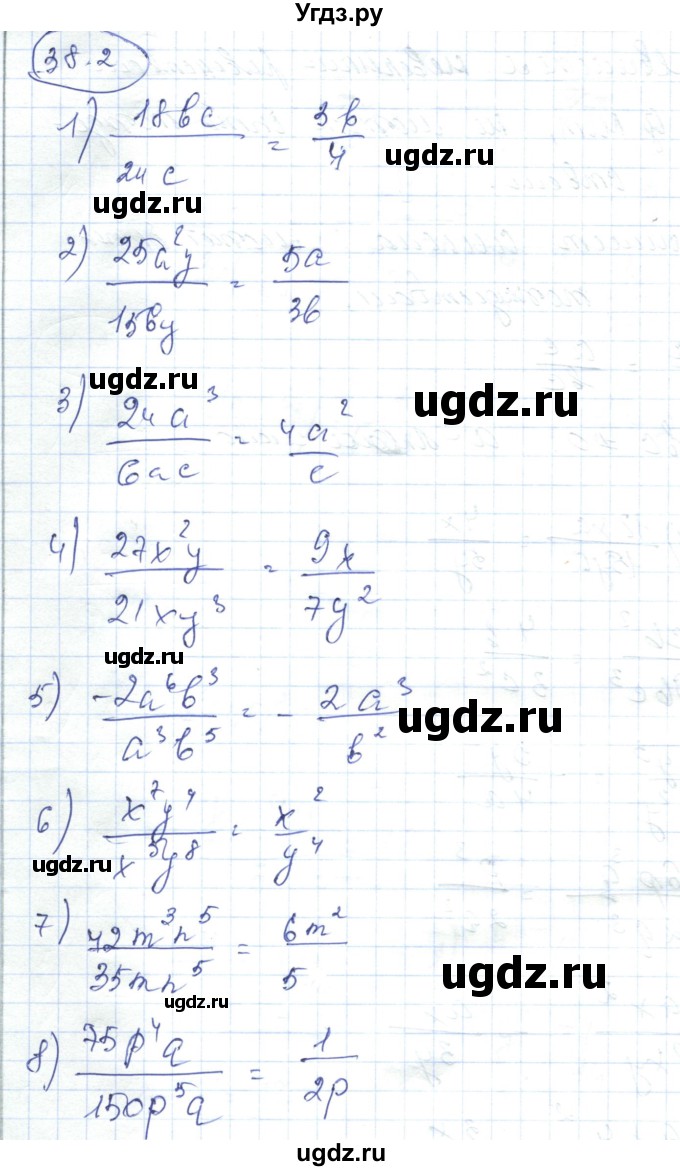 Угдз.ру
38.2
1) 18bc / 24c = 3b / 4
ugdz.ru
ugdz.ru
2) 25a²y / 15by = 5a / 3b
ugdz.ru
ugdz.ru
3) 24a³ / 6ac = 4a² / c
4) 27x²y / 21xy³ = 9x / 7y²
ugdz.ru
5) -2a⁶b³ / a³b⁵ = - 2a³ / b²
ugdz.ru
6) x⁷y⁴ / x⁵y⁸ = x² / y⁴
ugdz.ru
7) 42m³n⁵ / 35mn⁵ = 6m² / 5
ugdz.ru
ugdz.ru
8) 75p⁴q / 150p⁵q = 1 / 2p
ugdz.ru